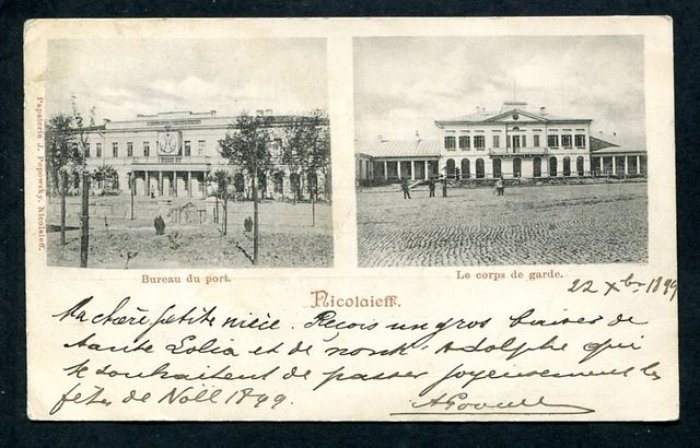 Papeterie J. Popowsky, Nicolaieff.
Bureau du port.
Le corps de garde.
Nicolaieff.
22 Xbr 1899
Ma chère petite nièce. Reçois un gros baiser de
tante Lolia et de Adolphe qui
te souhaitent de passer joyeusement les
fêtes de Noël 1899.